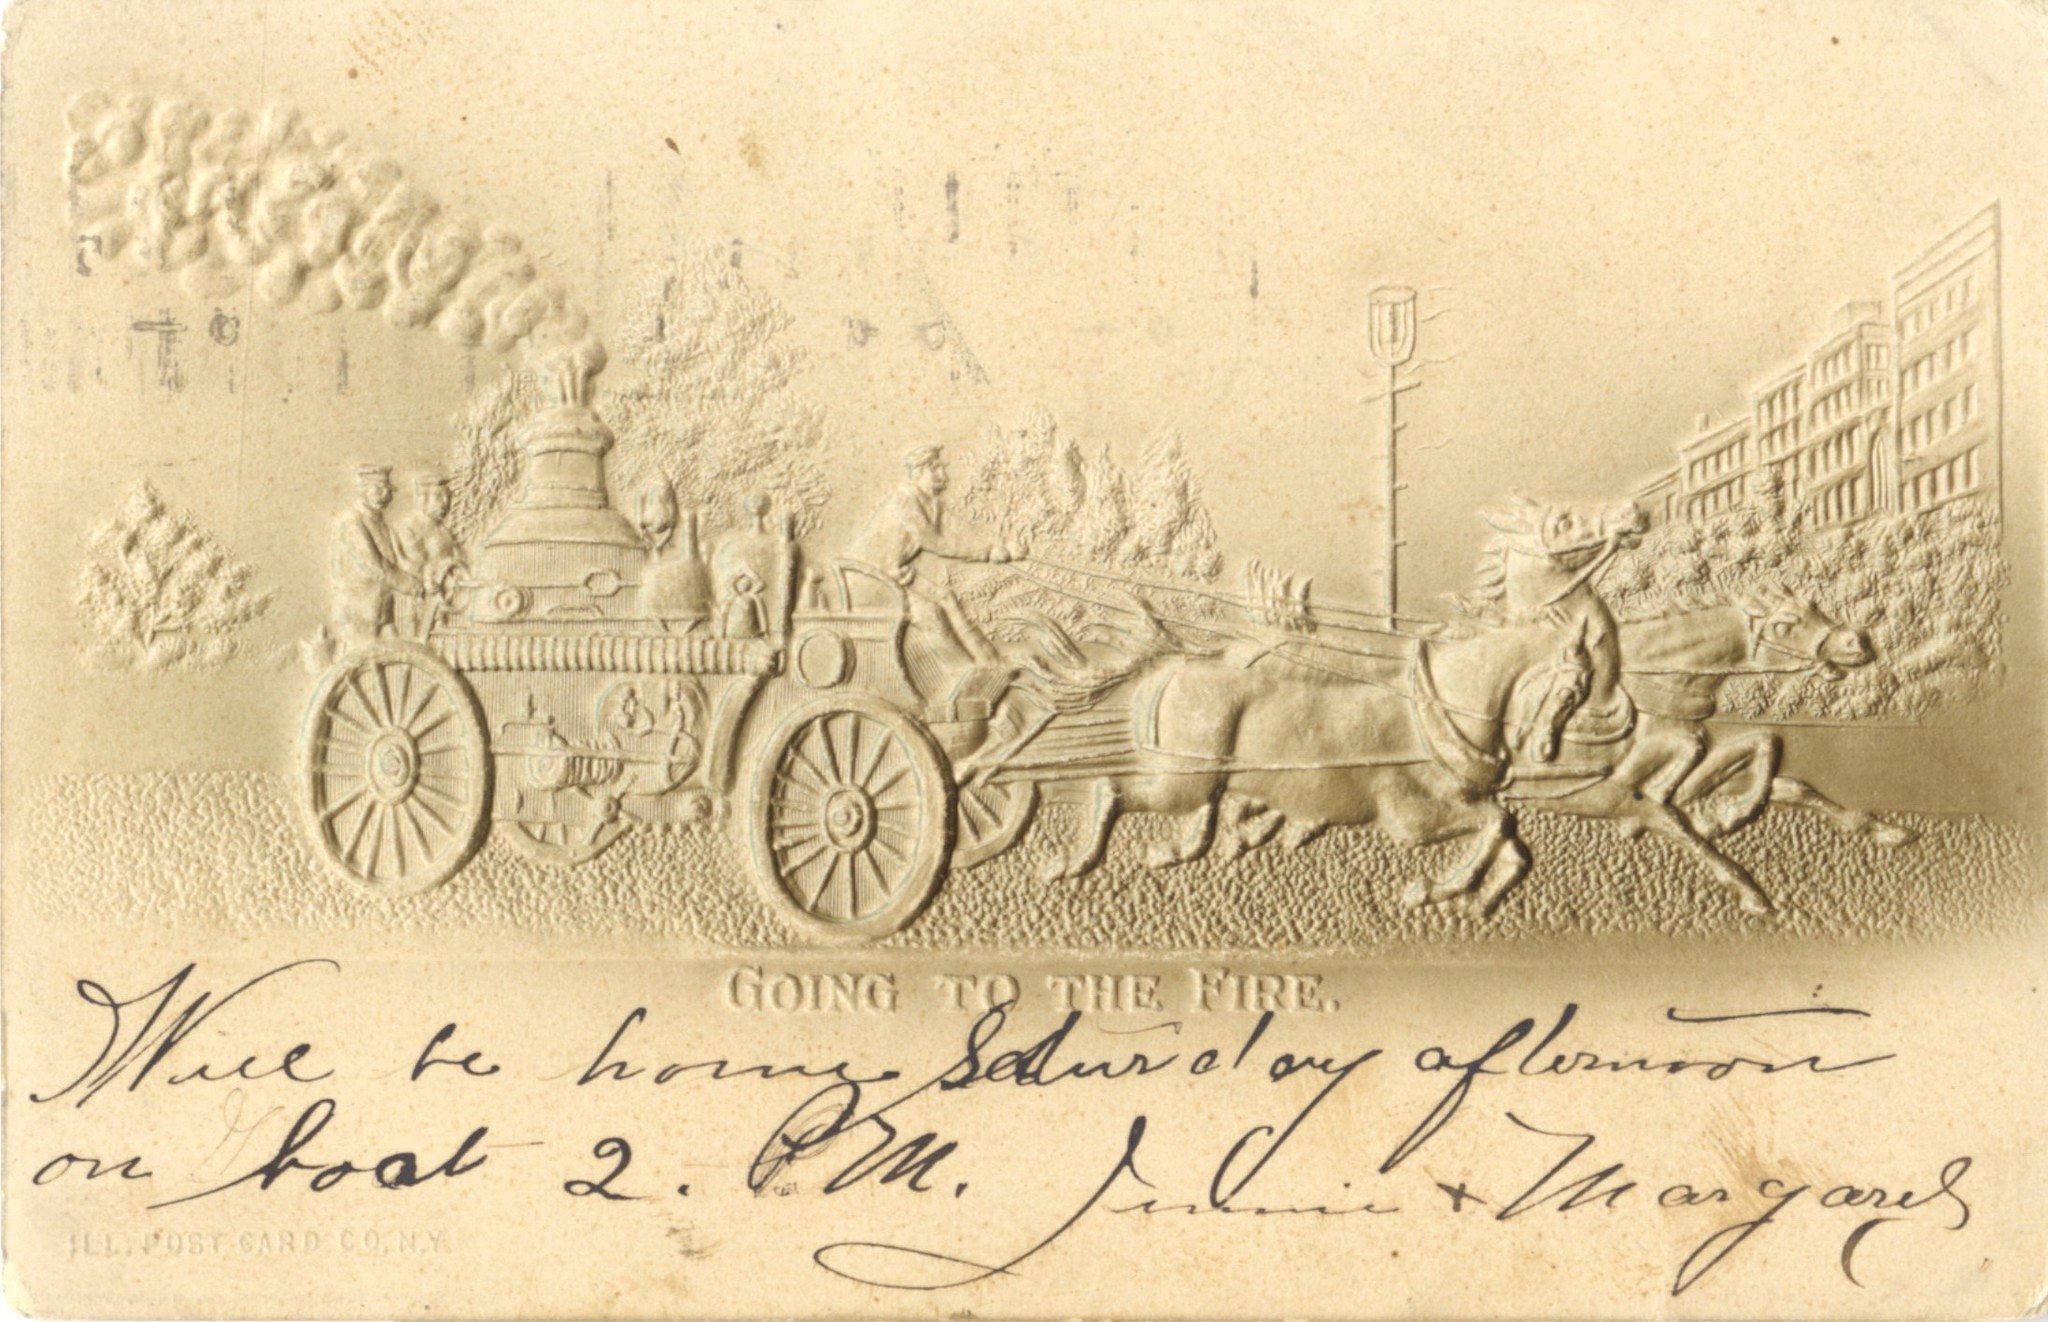 GOING TO THE FIRE.
Will be home Saturday afternoon
on boat 2. P.M. Jennie + Margaret
ILL. POST CARD CO., N.Y.